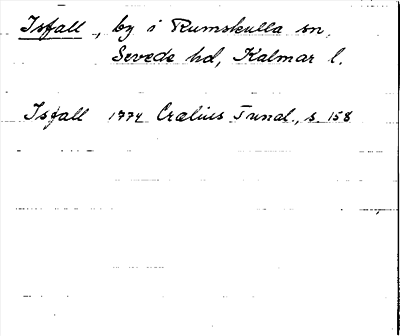 Isfall, by i Rumskulla sn,
Sevede hd, Kalmar l.
Isfall 1774 Crælius Tunal., s. 158